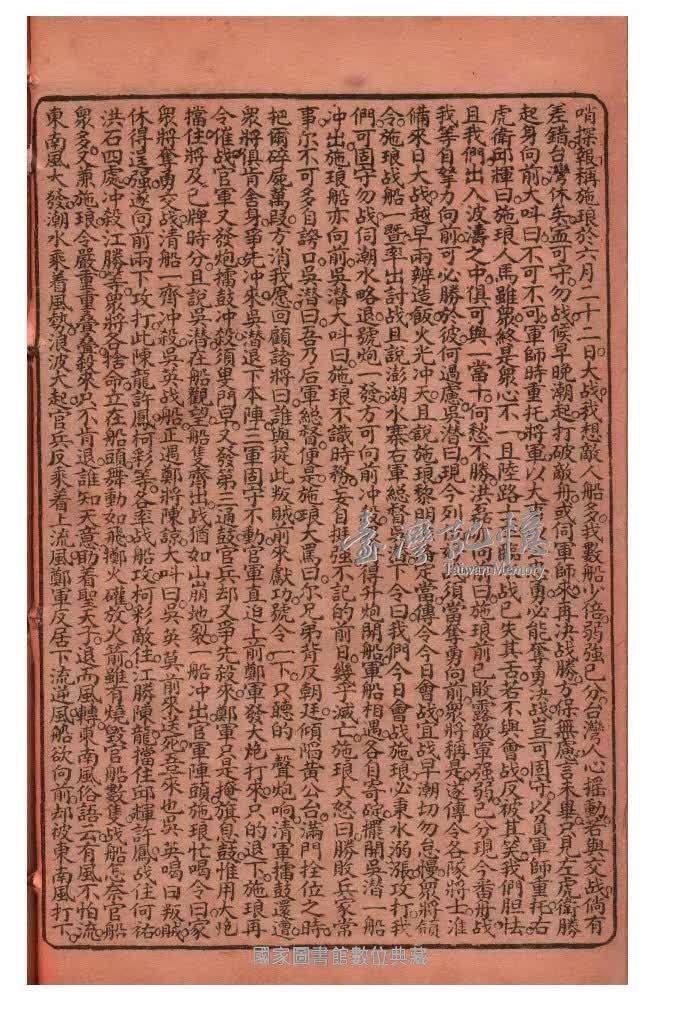 哨探報稱施琅於六月二十二日大战我想敵人船多我數船少倍弱強已分台灣人心摇動若與交战倘有
差錯台灣休矣盍可守勿战候早晚潮起打破敵舟或伺軍師來再决战勝方保無慮言未畢只見左虎衛勝
起身向前大呌曰不可不可軍師時重托將軍以大 勇必能奪勇决战豈可固守以負軍師重托右
虎衛邱輝曰施琅人馬雖衆終是衆心不一且陸路 战已失其 若不與會战反被其笑我們胆怯
且我們出入波濤之中俱可與一當下何愁不勝洪 向 曰施琅前已敗露敵軍強弱已分現今 舟战
我等自努力向前可必勝於彼何過慮吳潛曰現今列 須當奪勇向前衆將稱是遂傳令各隊將士准
備來日大战越早兩辨造飯火光冲天且說施琅黎明 定當傳令今日會战宜战早潮切勿怠慢衆將領
令施琅战船一暨率出討战且說澎湖水寨右軍總督吳 下令曰我們今日會战施琅必秉水溺漲攻打我
們可固守勿战伺潮水略退號炮一發方可向前冲 得升炮開船軍船相遇各自寄碇擺開吳潛一船
冲出施琅船亦向前吳潛大呌曰施琅不識時務妄自抵強不記的前日幾乎滅亡施琅大怒曰勝敗兵家常
事尔不可多自誇口吳潛曰吾乃后軍總督便是施琅大罵曰尔兄弟背反朝廷傾陷黄公台滿門拴位之時
把爾碎屍萬叚方消我愿回顧諸將曰誰與捉此叛賊前來獻功號令一下只聽的一聲炮响清軍擂鼓還遭
衆將俱肯舍身爭先冲來吳潜退下本陣三軍固守不動官軍直迫上前鄭軍發大炮打來只的退下施琅再
令催战官軍又發炮擂鼓冲殺須臾門早又發第三通鼓官兵却又爭先殺來鄭軍只是掩旗息鼓惟用大炮
擋住將及巳牌時分且說吳潛在船觀望船隻齊出战猶如山崩地裂一船冲出官軍陣頭施琅忙喝令曰家
衆將奪勇交战清船一齊冲殺吳英战船正遇鄭將陳諒大呌曰吳英莫前來送死吾來也吳英喝曰叛賊
休得逞強遂向前兩下攻打此陳龍許鳳柯彩等各率战船攻柯彩敵住江勝陳龍擋住邱輝許鳳战住何祐
洪石四處冲殺江勝等衆將各捨命立在船頭舞動如飛擲火礶放火箭雖有燒毀官船數隻战船怎奈官船
衆多又兼施琅令嚴重重叠叠殺來只不肯退誰知天意助着聖天子退西風轉東南風俗語云有風不怕流
東南風大發潮水乘着風勢浪波大起官兵反乘着上流風鄭軍反居下流逆風船欲向前却被東南風打下
臺灣記憶
Taiwan Memory
國家圖書館數位典藏